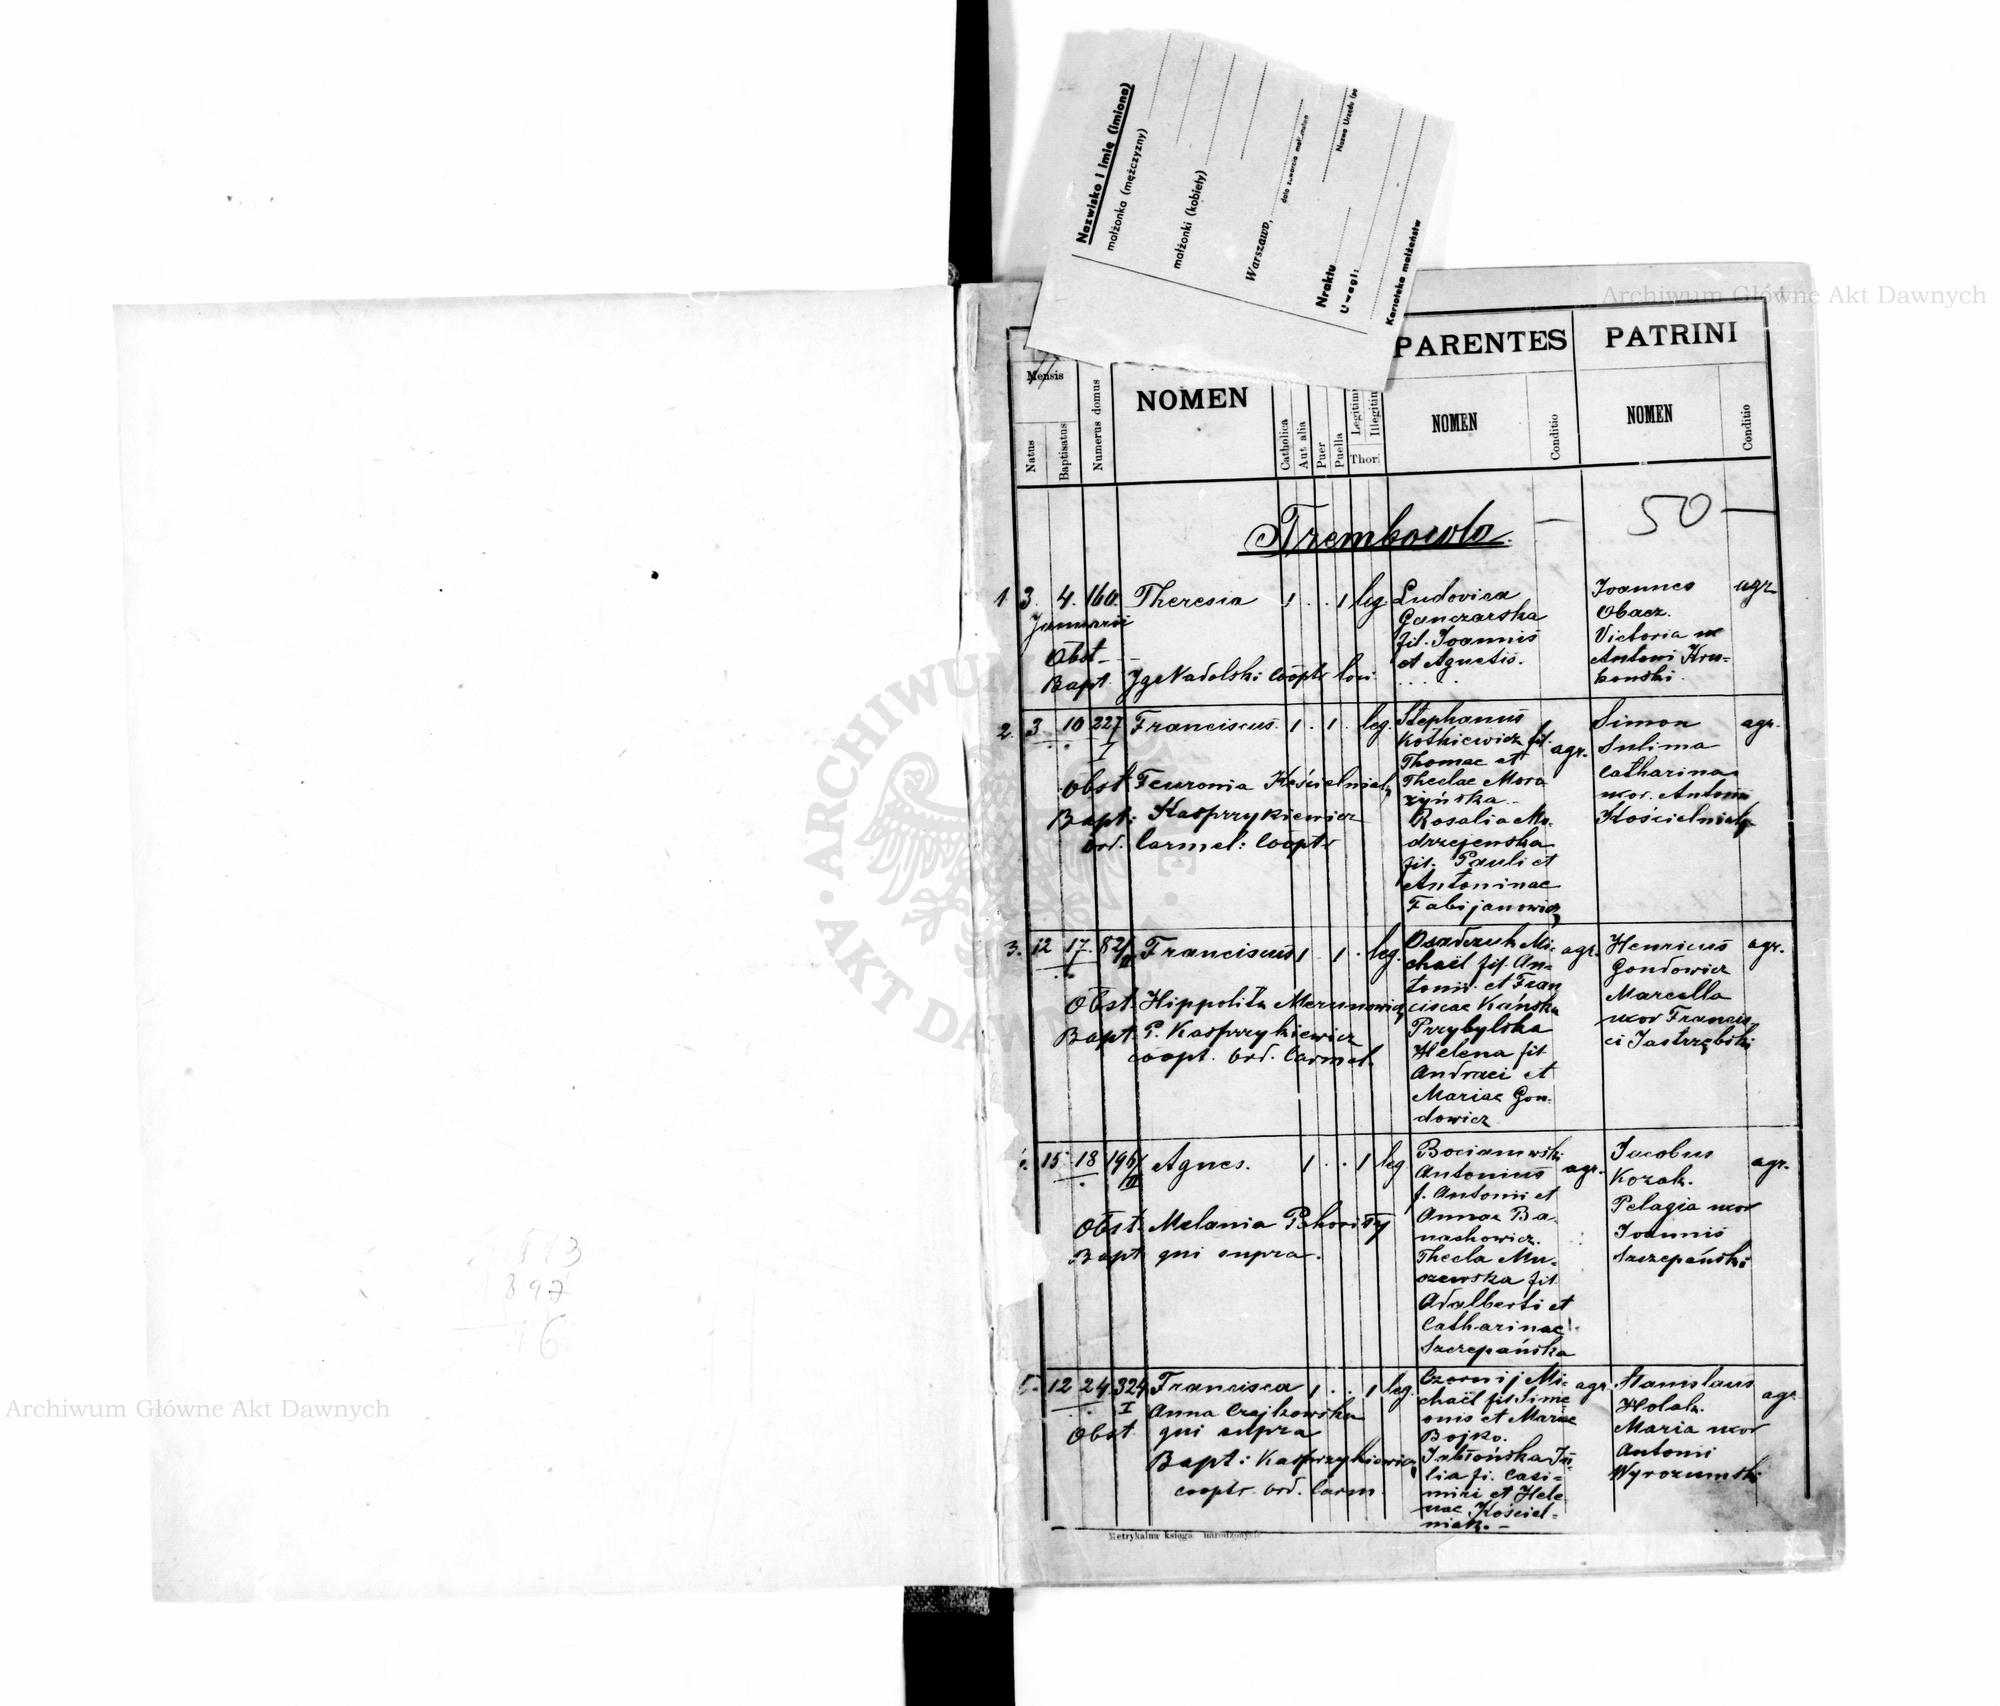 Nazwisko i imię (imiona)
małżonka (mężczyzny)
małżonki (kobiety)
Warszawa,
data zawarcia małżeństwa
Nazwa Urzędu
Nr aktu
Uwagi:
Kartoteka małżeństw
Archiwum Główne Akt Dawnych
PARENTES PATRINI
Mensis
Natus Baptisatus Numerus domus NOMEN Catholica Aut alia Puer Puella Thori NOMEN Conditio NOMEN Conditio
Trembowla. — 50 —
1. 3. 4. 160. Theresia 1 . . 1 leg.
Januarii
Obst. —
Bapt. Ig Nadolski cooptr loci.
Ludovica
Ganczarska
fil. Joannis
et Agnetis.
Joannes
Obacz.
Victoria ux
Antoni Kru-
konski.
agr.
2. 3 10 227 Franciscus. 1. . 1. . leg.
I
Obst. Feuronia Kościelniak
Bapt: Kasprzykiewicz
ord. Carmel: Cooptr
Stephanus
Kotkiewicz fil.
Thomae et
Theclae Mora
zyńska. -
Rosalia Mo-
drzejewska
fil. Pauli et
Antoninae
Fabijanowicz
agr.
Simon
Sulima
Catharina
uxor. Antonii
Kościelniak
agr.
3. 12 17. 82/II Franciscus 1 . 1 . leg.
Obst. Hippolita Merunowicz
Bapt. P. Kasprzykiewicz
coopt. ord. Carmel.
Osadczuk Mi-
chaël fil. An-
tonii. et Fran
ciscae Kańska
Przybylska
Helena fil
Andraei et
Mariae Gon-
dowicz
agr.
Henricus
Gondowicz
Marcella
uxor Francis
ci Jastrzębski
agr.
15. 18 196/II Agnes. 1 . . 1 leg
Obst. Melania
Bapt. qui supra.
Bocianowski
Antonius
f. Antonii et
Annae Ba-
nachowicz.
Thecla Mu-
szewska fil
Adalberti et
Catharinae
Szczepańska
agr.
Jacobus
Kozak.
Pelagia uxor
Joannis
Szczepański
agr.
5. 12 24. 324 Francisca 1 . . 1 leg.
I Anna Czajkowska
Obst. qui supra
Bapt: Kasprzykiewicz
cooptr. ord. Carm.
Czornij Mi-
chaël fil. Sime
onis et Mariae
Bojko.
Jabłońska Ju-
lia fi. Casi-
miri et Hele
nae Kościel-
niak. -
agr.
Stanislaus
Holak.
Maria uxor
Antonii
Wyrozumski
agr
Metrykalna księga narodzonych
897
16
Archiwum Główne Akt Dawnych
ARCHIWUM GŁÓWNE AKT DAWNYCH